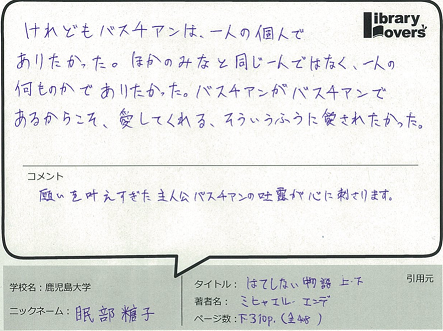 Library Lovers'
けれどもバスチアンは、一人の個人で
ありたかった。ほかのみなと同じ一人ではなく、一人の
何ものかでありたかった。バスチアンがバスチアンで
あるからこそ、愛してくれる、そういうふうに愛されたかった。
コメント
願いを叶えすぎた主人公バスチアンの吐露が心に刺さります。
引用元
学校名：鹿児島大学
ニックネーム：眠部糖子
タイトル：はてしない物語 上・下
著者名：ミヒャエル・エンデ
ページ数：下310p.